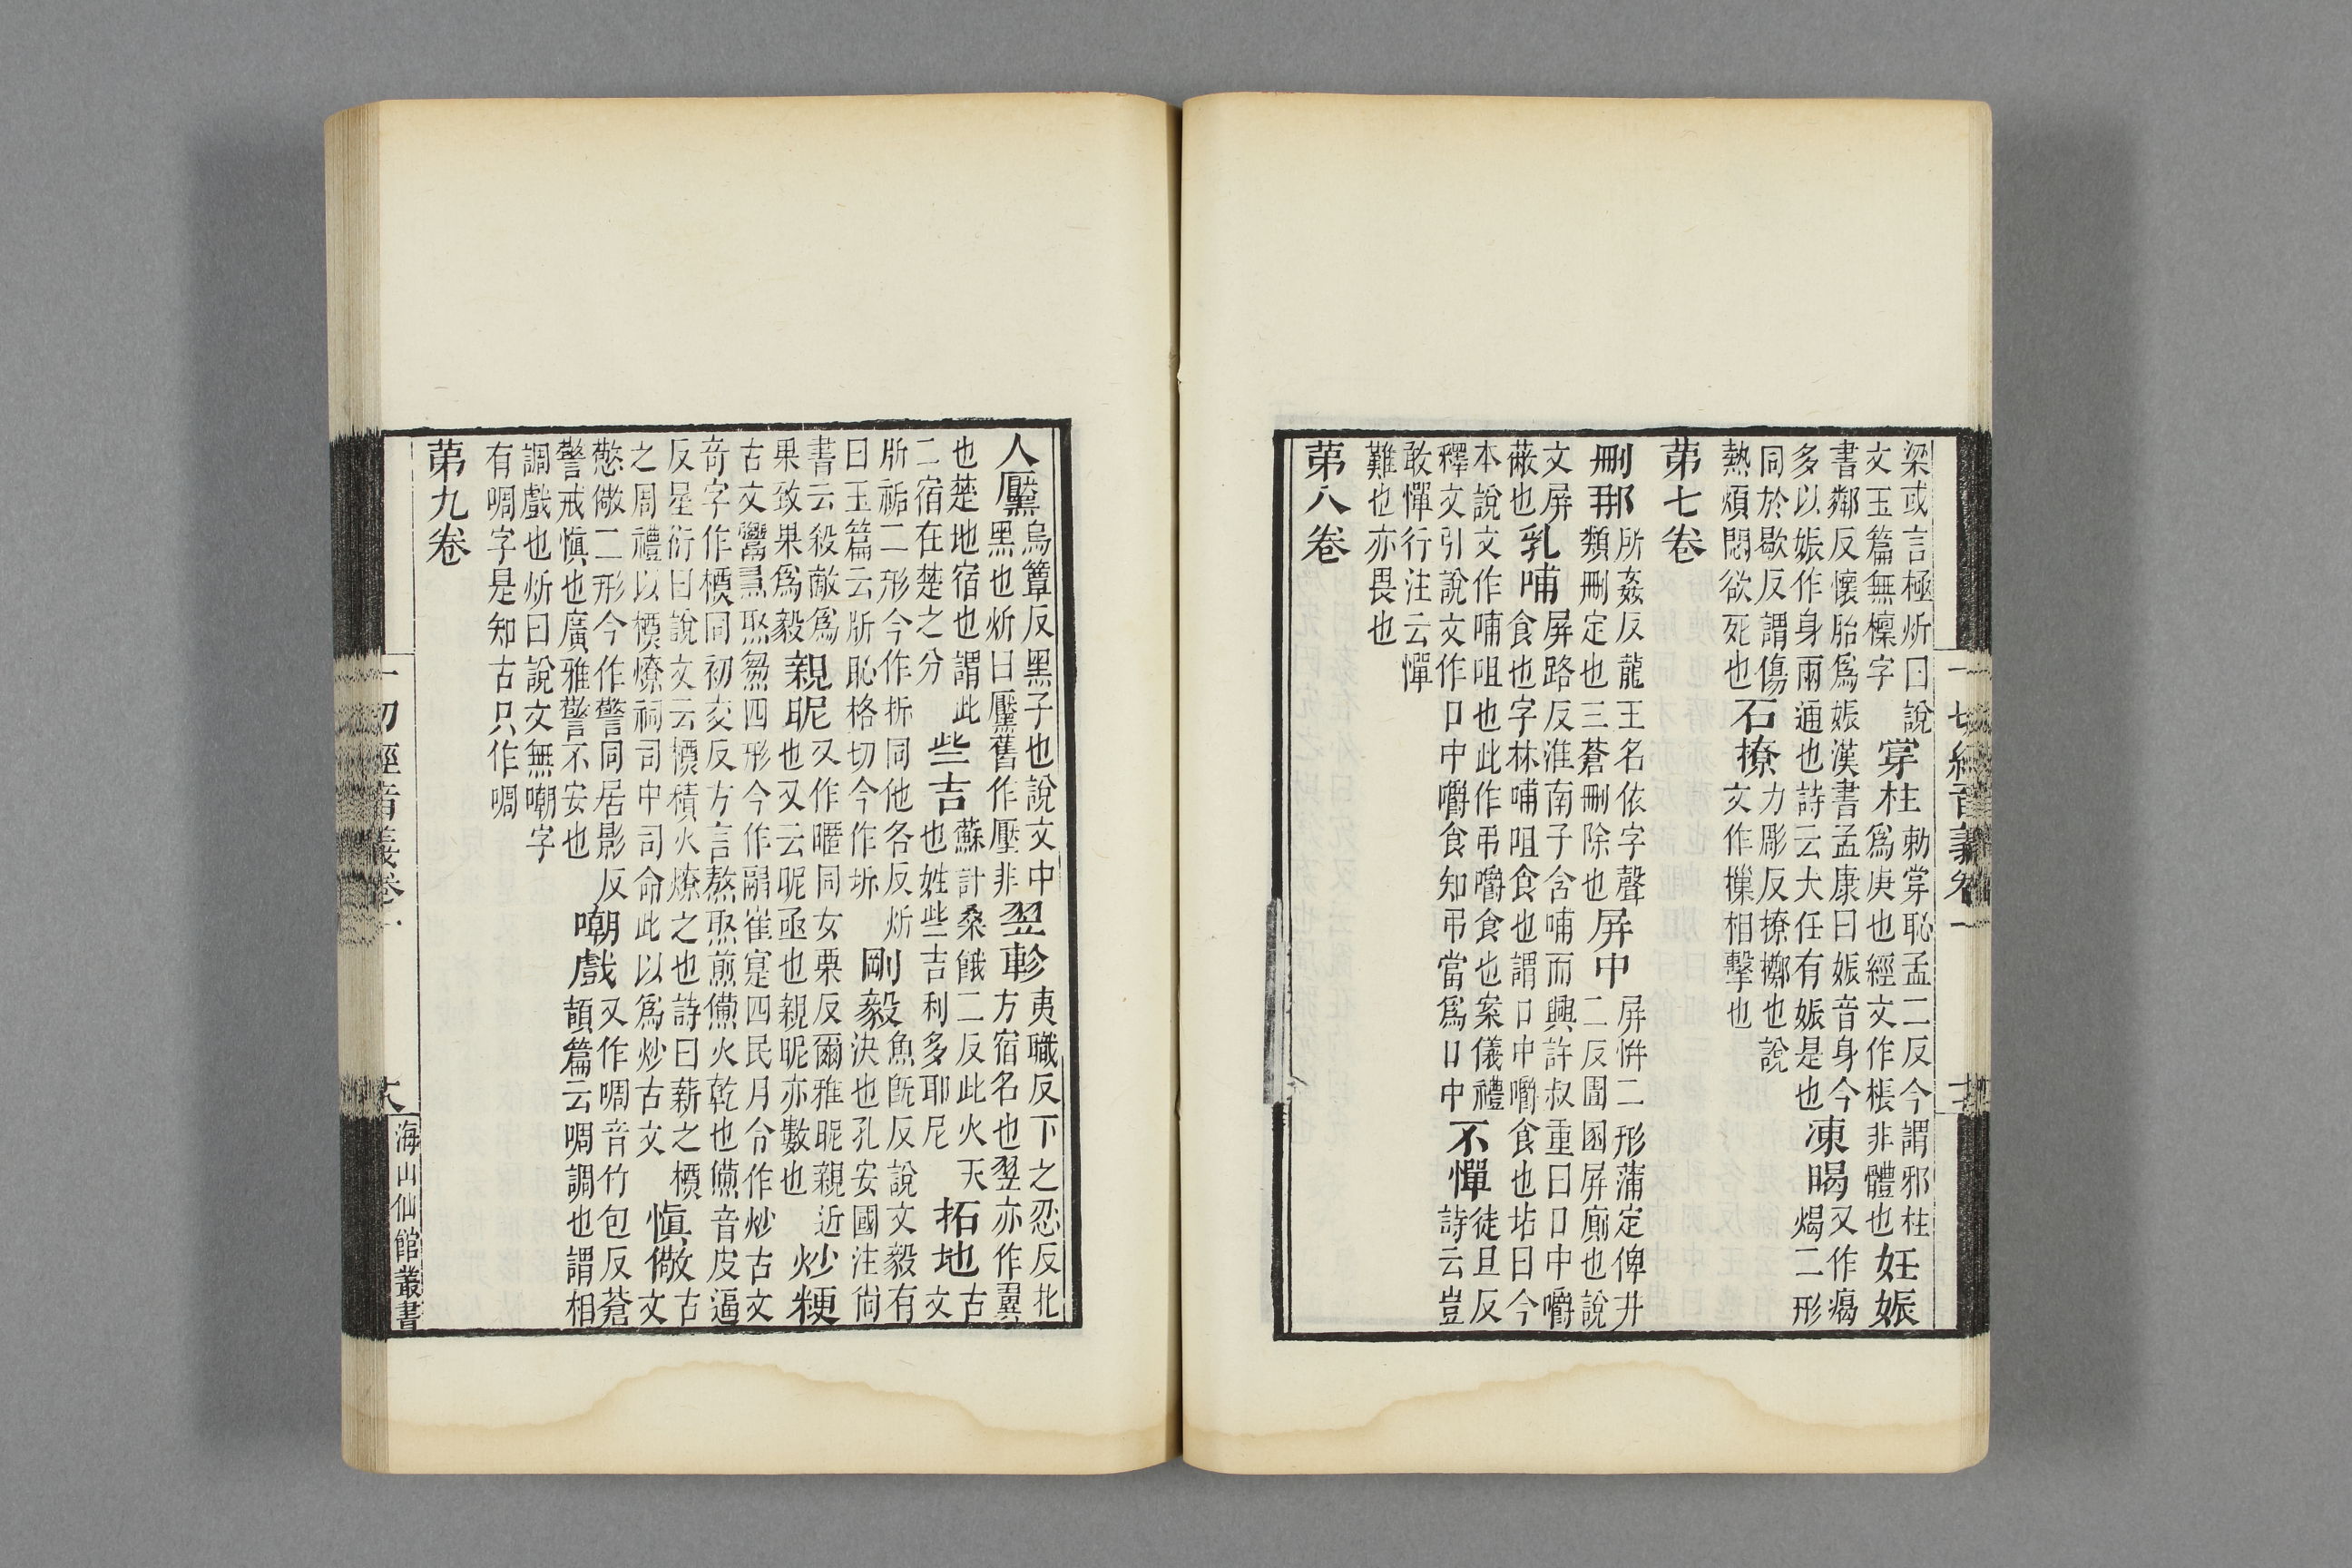 梁或言極炘曰說
文玉篇無檁字
穿柱
勑穿恥孟二反今謂邪柱
爲庚也經文作棖非體也
妊娠
書鄰反懷胎爲娠漢書孟康曰娠音身今
多以娠作身兩通也詩云大任有娠是也
凍暍
又作㿣
熇二形
同於歇反謂傷
熱煩悶欲死也
石撩
力彫反撩擲也說
文作摷相擊也
第七卷
刪那
所姦反龍王名依字聲
類刪定也三蒼刪除也
屏中
屏恲二形蒲定俾井
二反圊圂屏廁也說
文屏
蔽也
乳哺
屏路反淮南子含哺而興許叔重曰口中嚼
食也字林哺咀食也謂口中嚼食也坫曰今
本說文作哺咀也此作弔嚼食也案儀禮
釋文引說文作口中嚼食知弔當爲口中
不憚
徒旦反
詩云豈
敢憚行注云憚
難也亦畏也
第八卷
一切經音義卷一
人黶
烏簟反黑子也說文中
黑也炘曰黶舊作壓非
翌軫
夷職反下之忍反北
方宿名也翌亦作翼
也楚地宿也謂此
二宿在楚之分
些吉
蘇計桑餓二反此火天
也姓些吉利多耶尼
拓地
古
文
㡿祏二形今作拆同他各反炘
曰玉篇云㡿恥格切今作坼
剛毅
魚旣反說文毅有
決也孔安國注尙
書云殺敵爲
果致果爲毅
親昵
又作暱同女栗反爾雅昵親近
也又云昵亟也親昵亦數也
炒粳
古文四形今作崔寔四民月令作炒古文
奇字作槱同初交反方言熬聚煎㷶火乾也㷶音皮逼
反星衍曰說文云槱積火燎之也詩曰薪之槱
之周禮以槱燎祠司中司命此以爲炒古文
愼儆
古
文
憼儆二形今作警同居影反
警戒愼也廣雅警不安也
嘲戲
又作啁音竹包反蒼
頡篇云啁調也謂相
調戲也炘曰說文無嘲字
有啁字是知古只作啁
第九卷
一切經音義卷一
海山仙館叢書